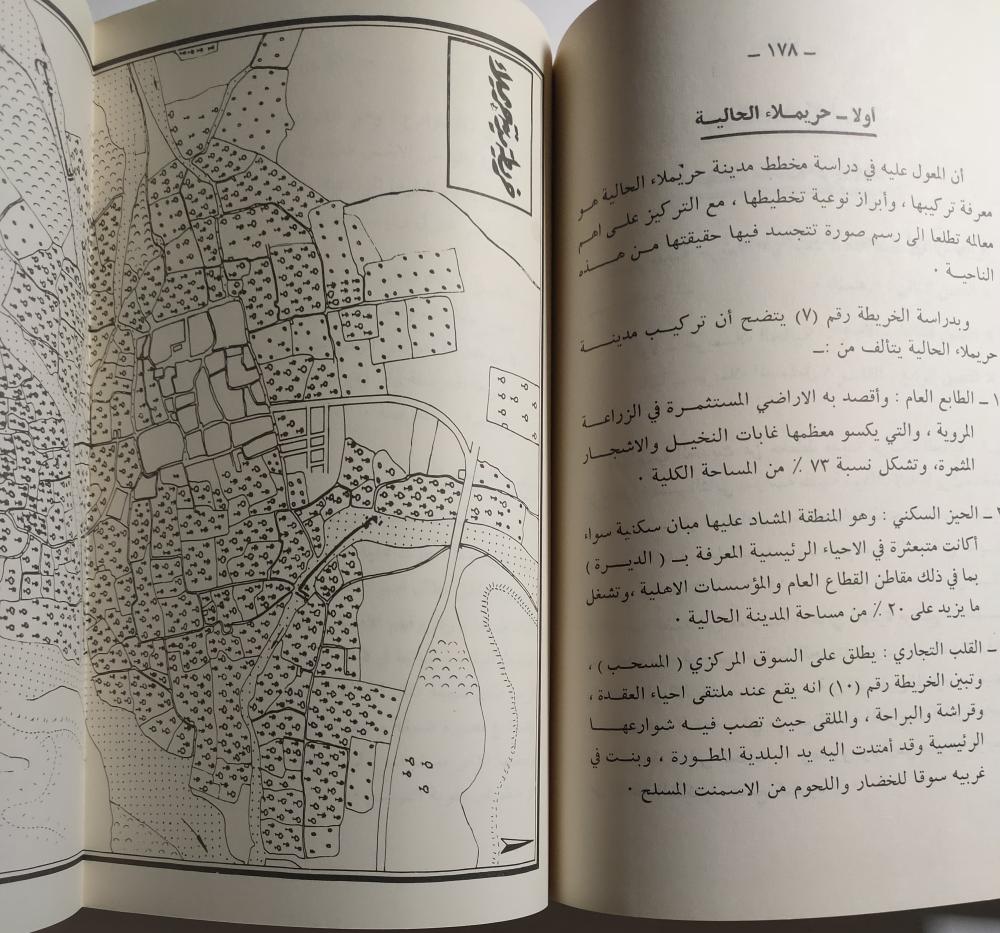 ـ ١٧٨ ـ
أولا ـ حريملاء الحالية
أن المعول عليه في دراسة مخطط مدينة حريملاء الحالية هو
معرفة تركيبها ، وأبراز نوعية تخطيطها ، مع التركيز على اهم
معالمه تطلعا الى رسم صورة تتجسد فيها حقيقتها من هذه
الناحية ٠
وبدراسة الخريطة رقم (٧) يتضح أن تركيب مدينة
حريملاء الحالية يتألف من :ـ
١ ـ الطابع العام : وأقصد به الاراضي المستثمرة في الزراعة
المروية ، والتي يكسو معظمها غابات النخيل والاشجار
المثمرة، وتشكل نسبة ٧٣ ٪ من المساحة الكلية ٠
ـ الحيز السكني : وهو المنطقة المشاد عليها مبان سكنية سواء
أكانت متبعثرة في الاحياء الرئيسية المعرفة بـ ( الديرة )
بما في ذلك مقاطن القطاع العام والمؤسسات الاهلية ،وتشغل
ما يزيد على ٢٠ ٪ من مساحة المدينة الحالية ٠
ـ القلب التجاري : يطلق على السوق المركزي ( المسحب ) ،
وتبين الخريطة رقم (١٠) انه يقع عند ملتقى احياء العقدة ،
وقراشة والبراحة ، والملقى حيث تصب فيه شوارعها
الرئيسية وقد أمتدت اليه يد البلدية المطورة ، وبنت في
غربيه سوقا للخضار واللحوم من الاسمنت المسلح ٠